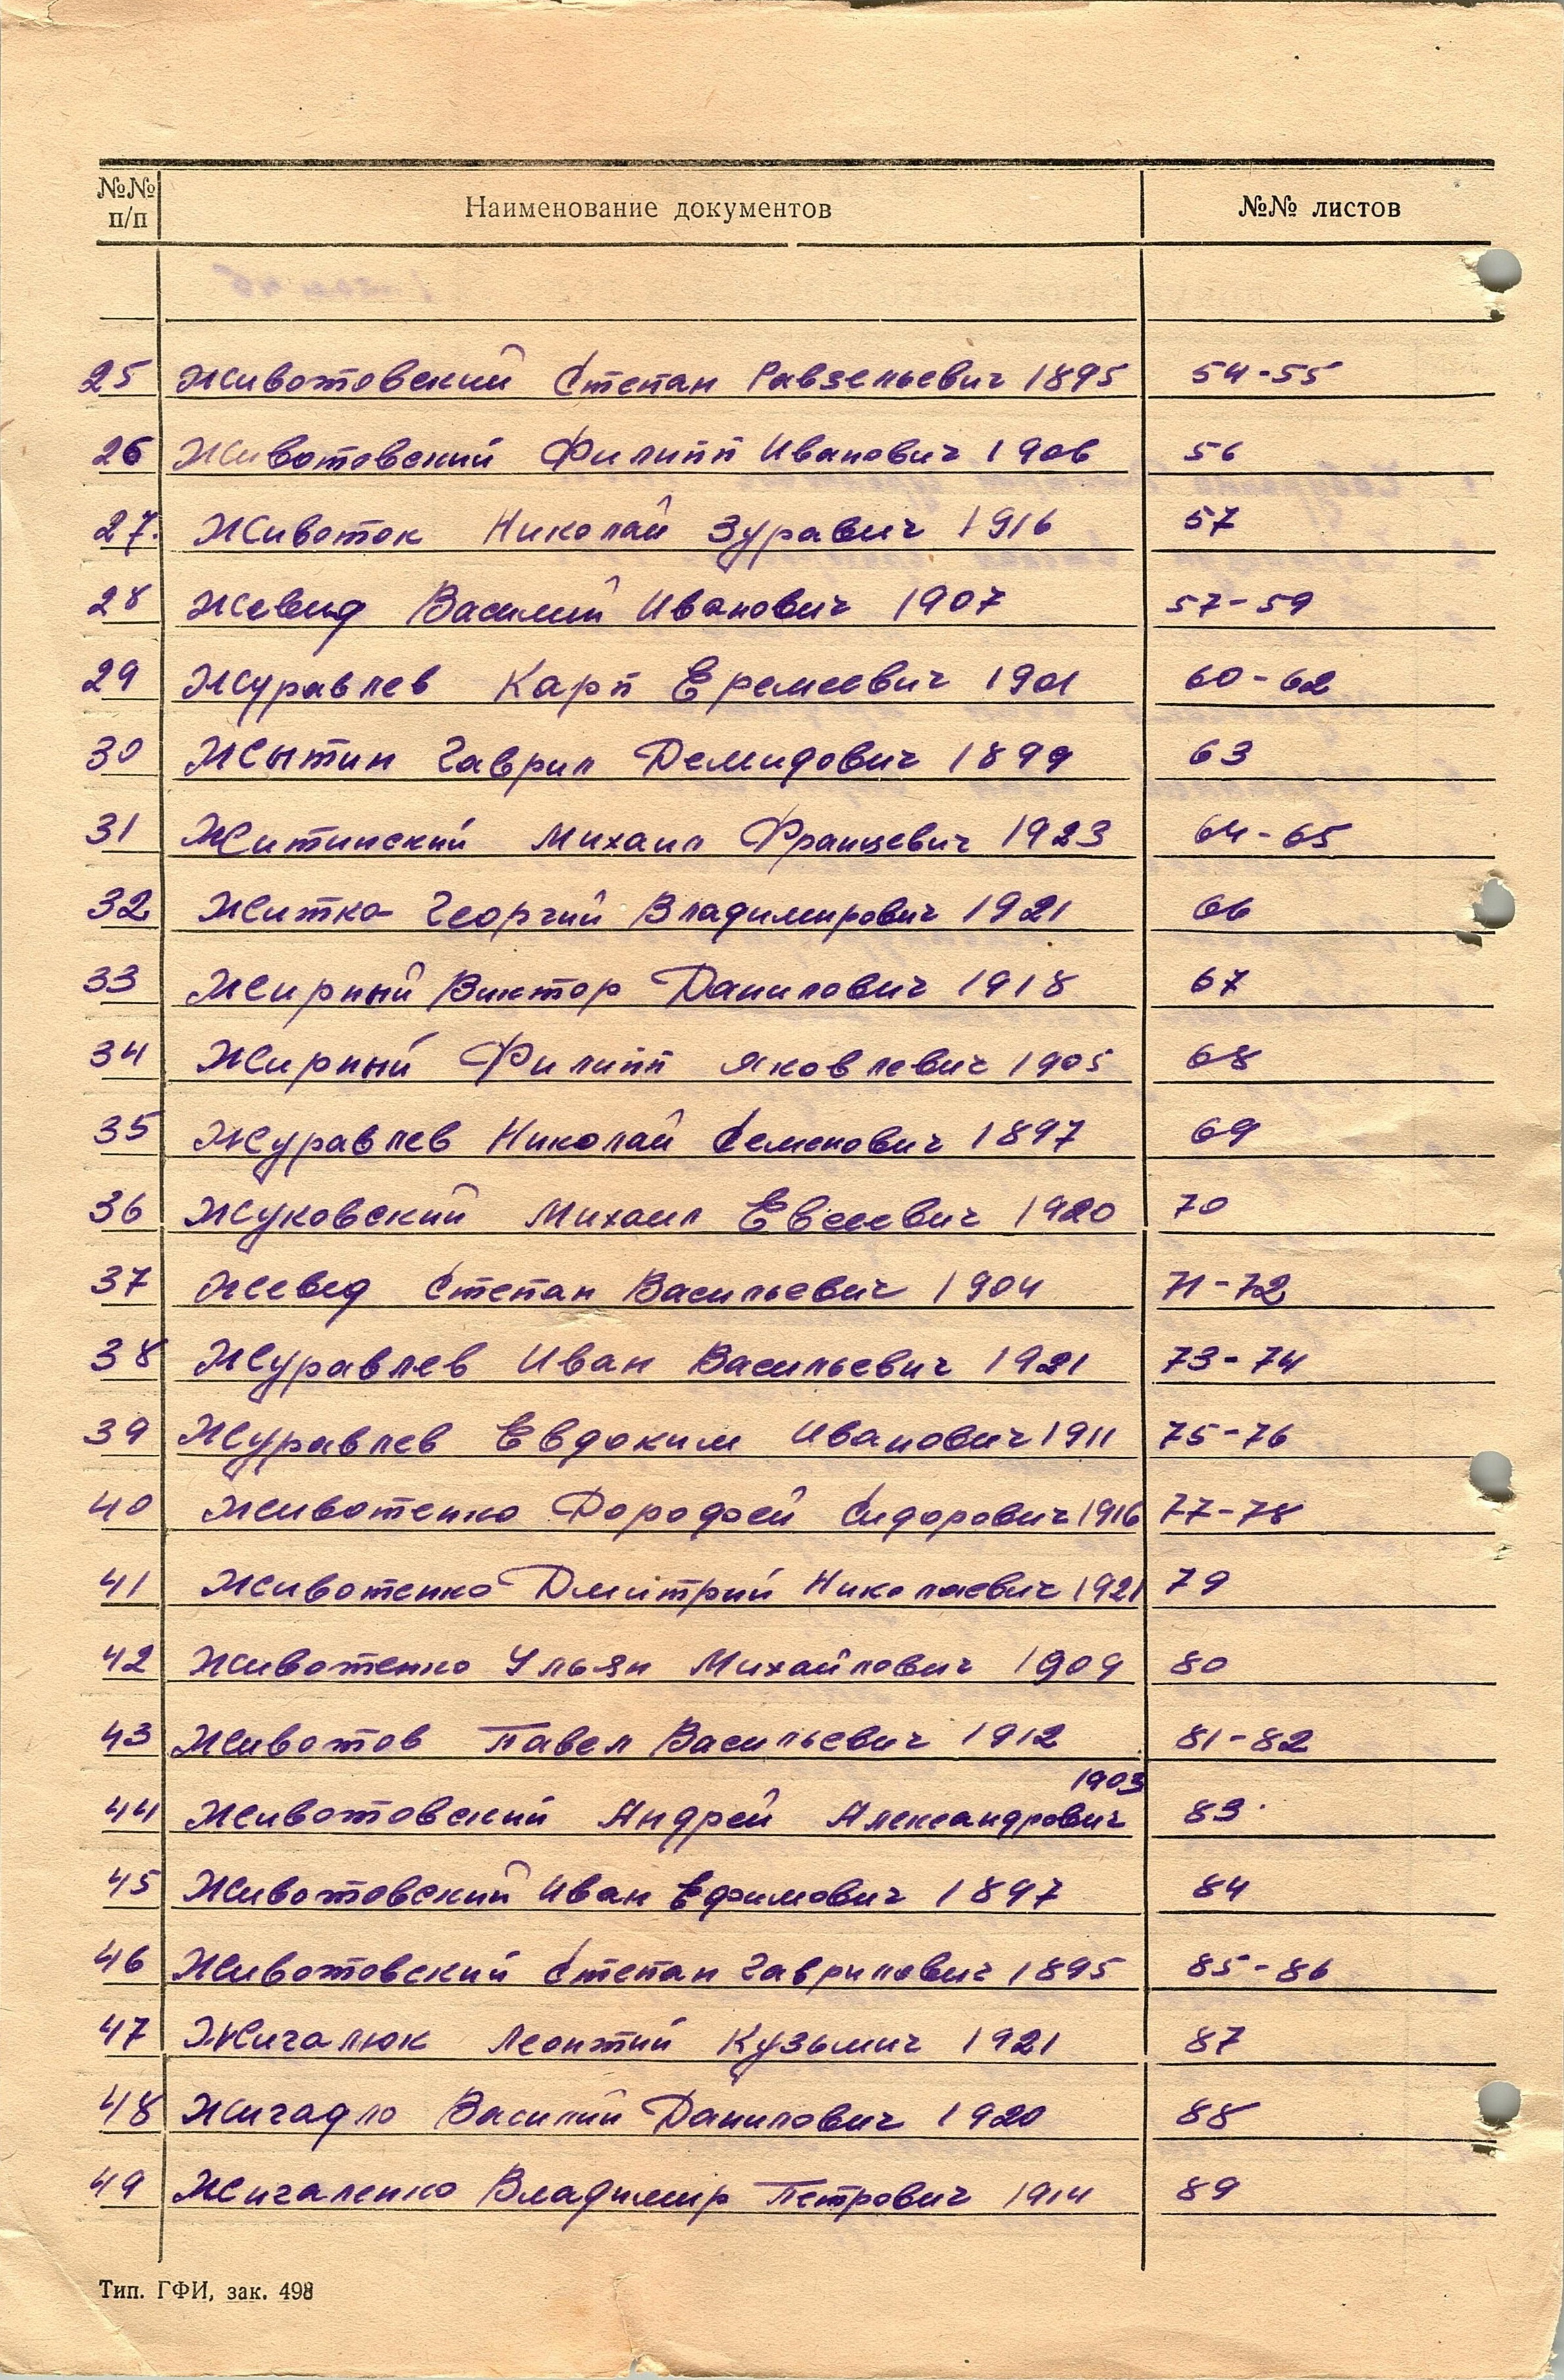 №№ п/п Наименование документов №№ листов
25 Животовский Степан Равзельевич 1895 54-55
26 Животовский Филипп Иванович 1906 56
27. Животок Николай Зуравич 1916 57
28 Жевид Василий Иванович 1907 57-59
29 Журавлев Карп Еремеевич 1901 60-62
30 Жытин Гаврил Демидович 1899 63
31 Житинский Михаил Францевич 1923 64-65
32 Житко Георгий Владимирович 1921 66
33 Жирный Виктор Данилович 1918 67
34 Жирный Филипп Яковлевич 1905 68
35 Журавлев Николай Семенович 1897 69
36 Жуковский Михаил Евсеевич 1920 70
37 Жевед Степан Васильевич 1904 71-72
38 Журавлев Иван Васильевич 1921 73-74
39 Журавлев Евдоким Иванович 1911 75-76
40 Животенко Дорофей Сидорович 1916 77-78
41 Животенко Дмитрий Николаевич 1921 79
42 Животенко Ульян Михайлович 1909 80
43 Животов Павел Васильевич 1912 81-82
44 Животовский Андрей Александрович 1903 83
45 Животовский Иван Ефимович 1897 84
46 Животовский Степан Гаврилович 1895 85-86
47 Жигалюк Леонтий Кузьмич 1921 87
48 Жигадло Василий Данилович 1920 88
49 Жигаленко Владимир Петрович 1914 89
Тип. ГФИ, зак. 498